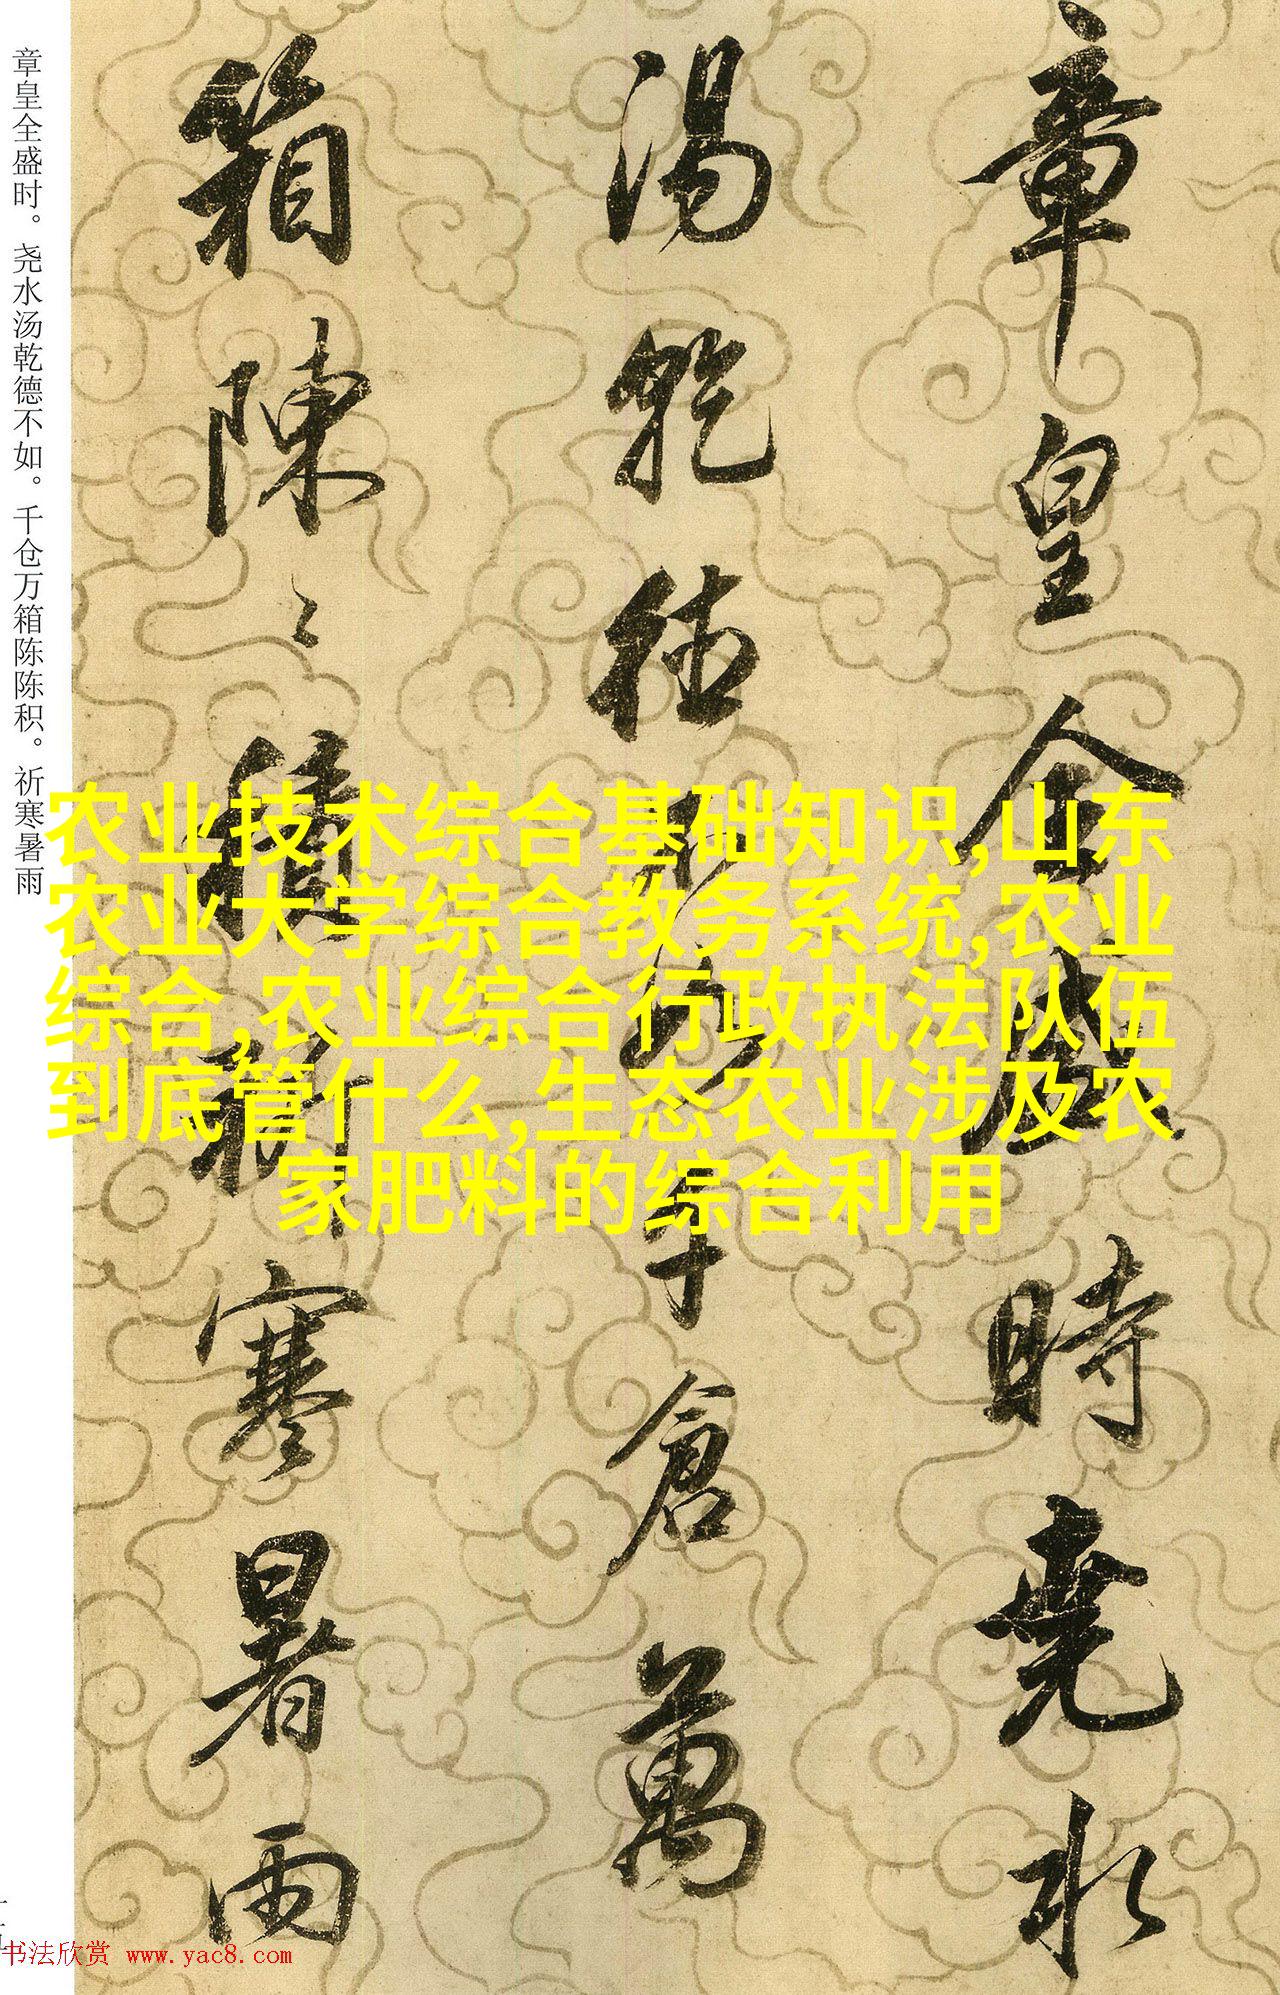 章皇全盛时。尧水汤乾德不如。千仓万箱陈陈积。祈寒暑雨
章皇全盛時堯水
湯乾德不如千倉萬
箱陳〻積祈寒暑雨
农业技术综合基础知识,山东
农业大学综合教务系统,农业
综合,农业综合行政执法队伍
到底管什么,生态农业涉及农
家肥料的综合利用
书法欣赏 www.yac8.com